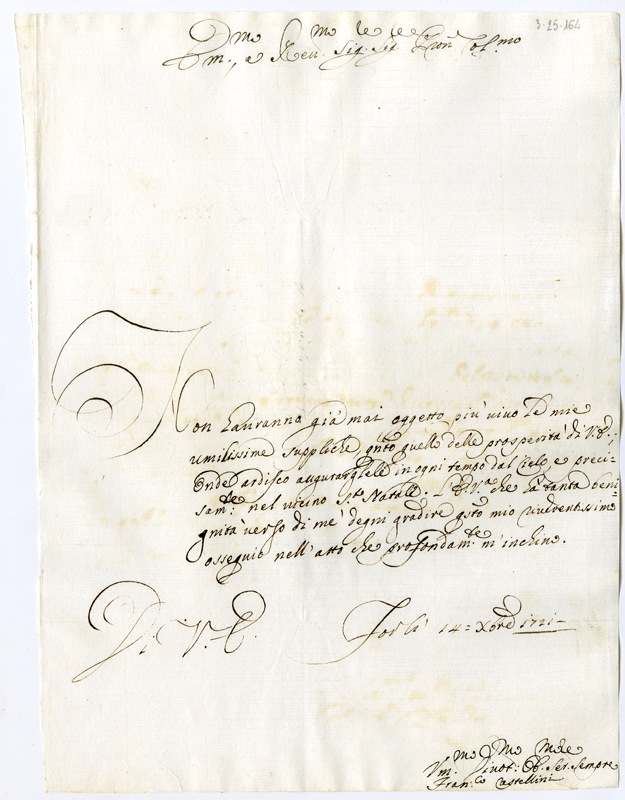 3-25-164
Em.mo, e Reu.mo Sig.re Sig.re Pron. Col.mo
Non hauranno già mai oggetto più viuo le mie
umilissime suppliche, qnto quello delle prosperità di V.E.;
Onde ardisco augurargliele in ogni tempo dal Cielo, e preci-
sam.te nel uicino S.to Natale. L'E.V.a che hà tanta beni-
gnità verso di me degni gradire qsto mio riuerentissimo
osseguio nell'atto che profondam.te m'inchino.
Di V. E. Forlì 14 = Xbre 1721 -
Vm.mo Diuot.mo Ob. Ser. sempre
Fran.co Castellini